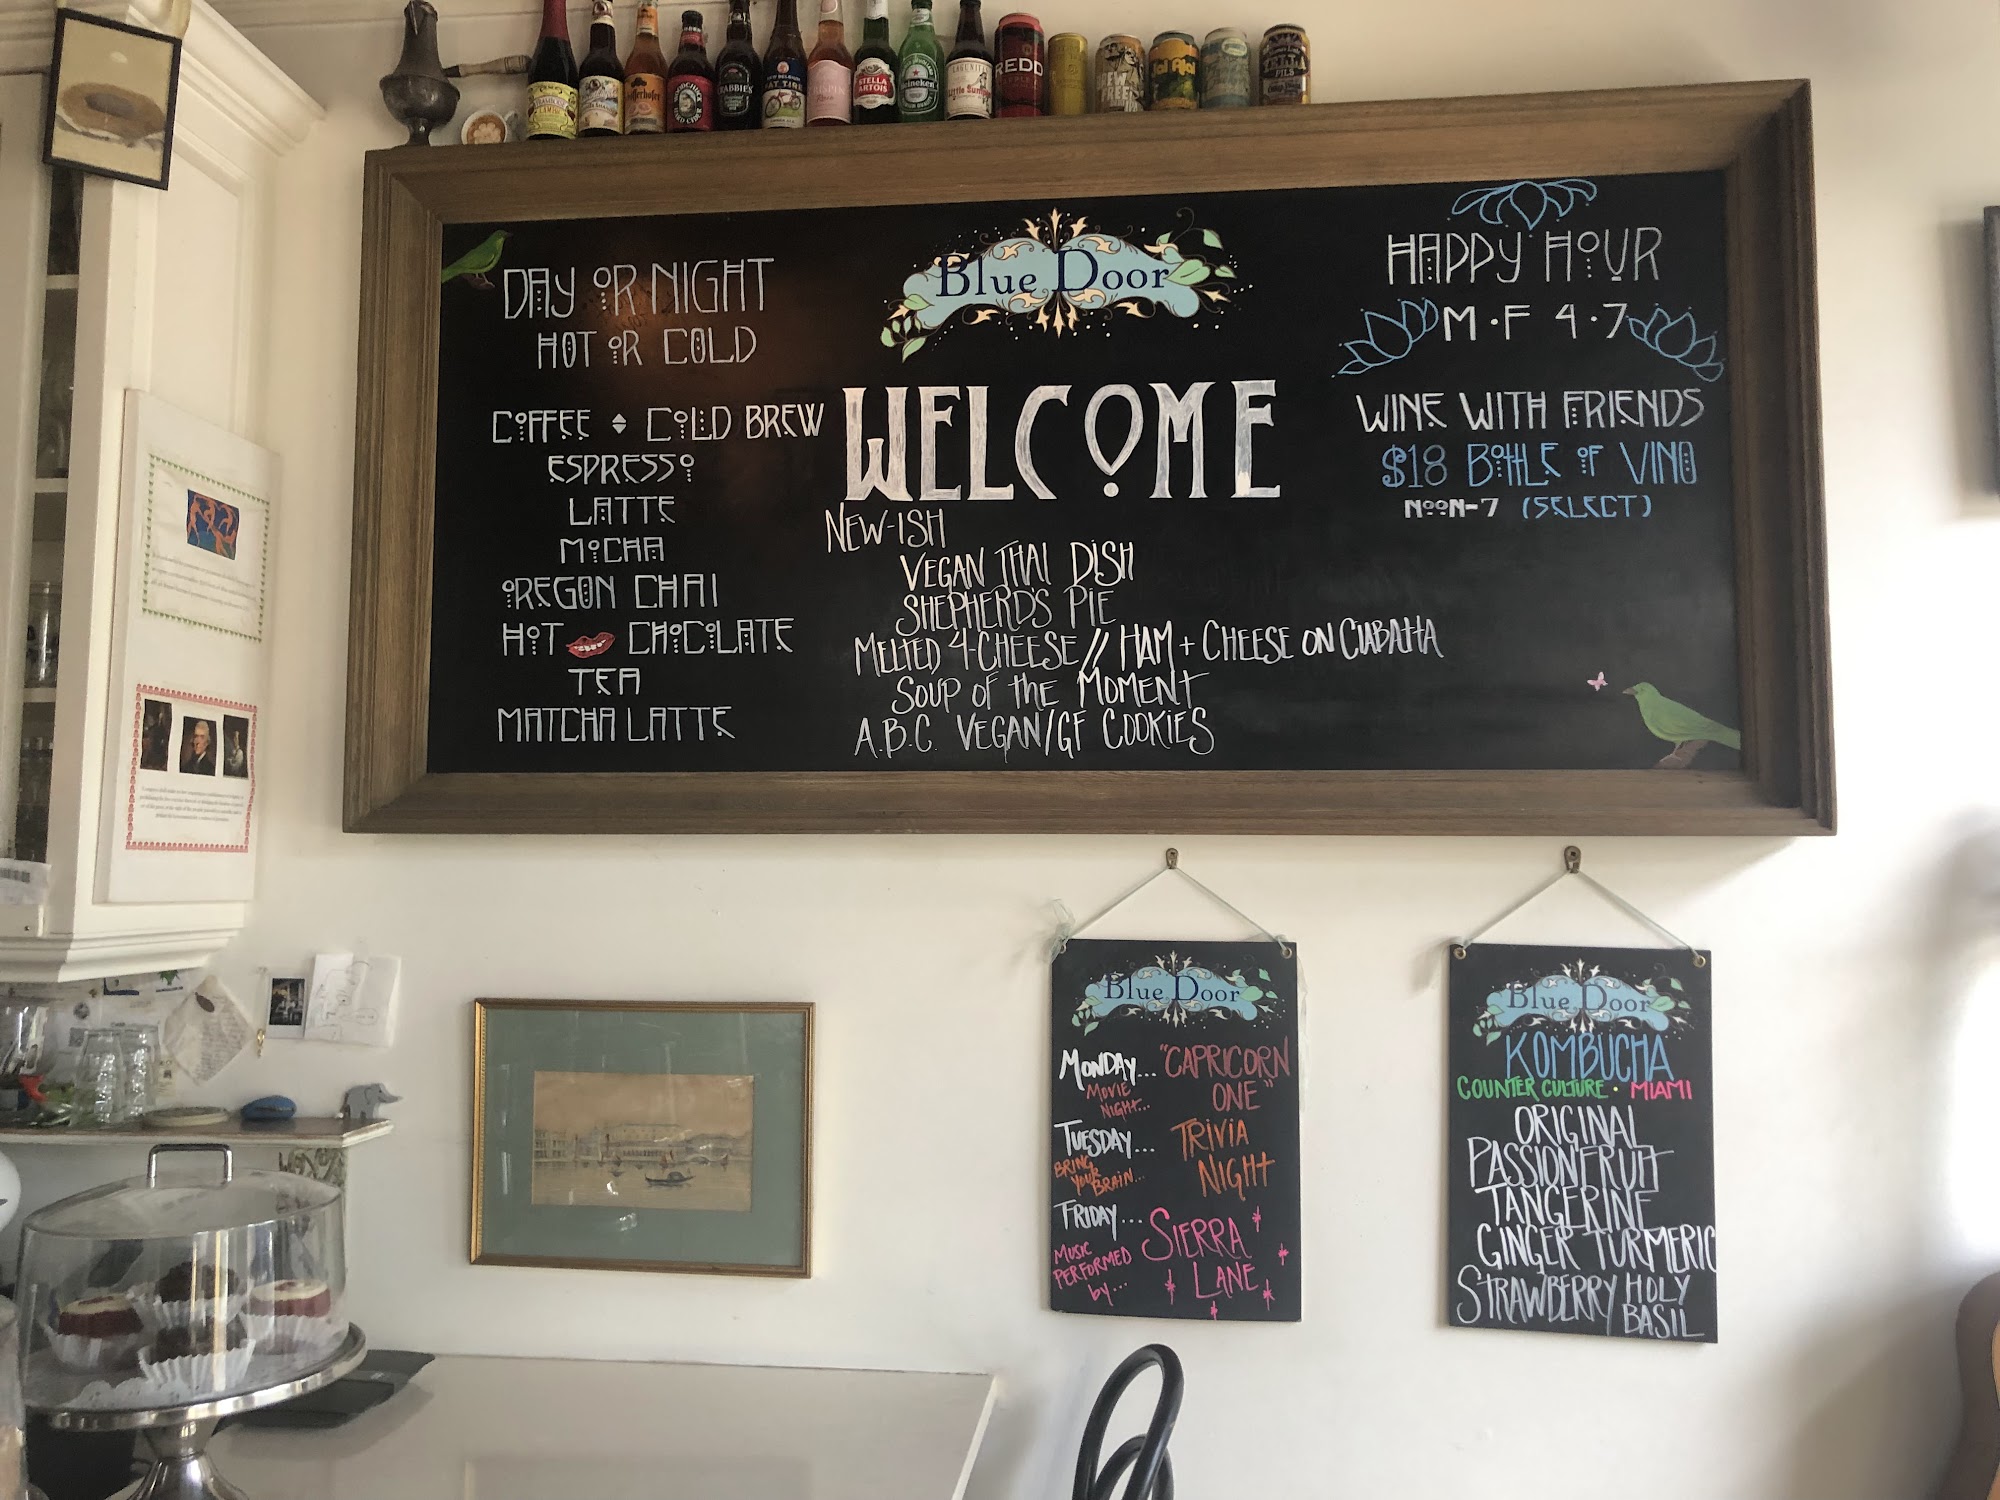 DAY OR NIGHT
HOT OR COLD
COFFEE COLD BREW
ESPRESSO
LATTE
MOCHA
OREGON CHAI
HOT CHOCOLATE
TEA
MATCHA LATTE
Blue Door
WELCOME
NEW-ISH
VEGAN THAI DISH
SHEPHERD'S PIE
MELTED 4-CHEESE // HAM + CHEESE ON CIABATTA
SOUP OF THE MOMENT
A.B.C. VEGAN/GF COOKIES
HAPPY HOUR
M·F 4·7
WINE WITH FRIENDS
$18 BOTTLE OF VINO
NOON-7 (SELECT)
STELLA
ARTOIS
Heineken
REDD
Blue Door
MONDAY... "CAPRICORN
MOVIE ONE"
NIGHT...
TUESDAY... TRIVIA
BRING NIGHT
YOUR
BRAIN...
FRIDAY... SIERRA
MUSIC LANE
PERFORMED
by...
Blue Door
KOMBUCHA
COUNTER CULTURE · MIAMI
ORIGINAL
PASSIONFRUIT
TANGERINE
GINGER TURMERIC
STRAWBERRY HOLY
BASIL